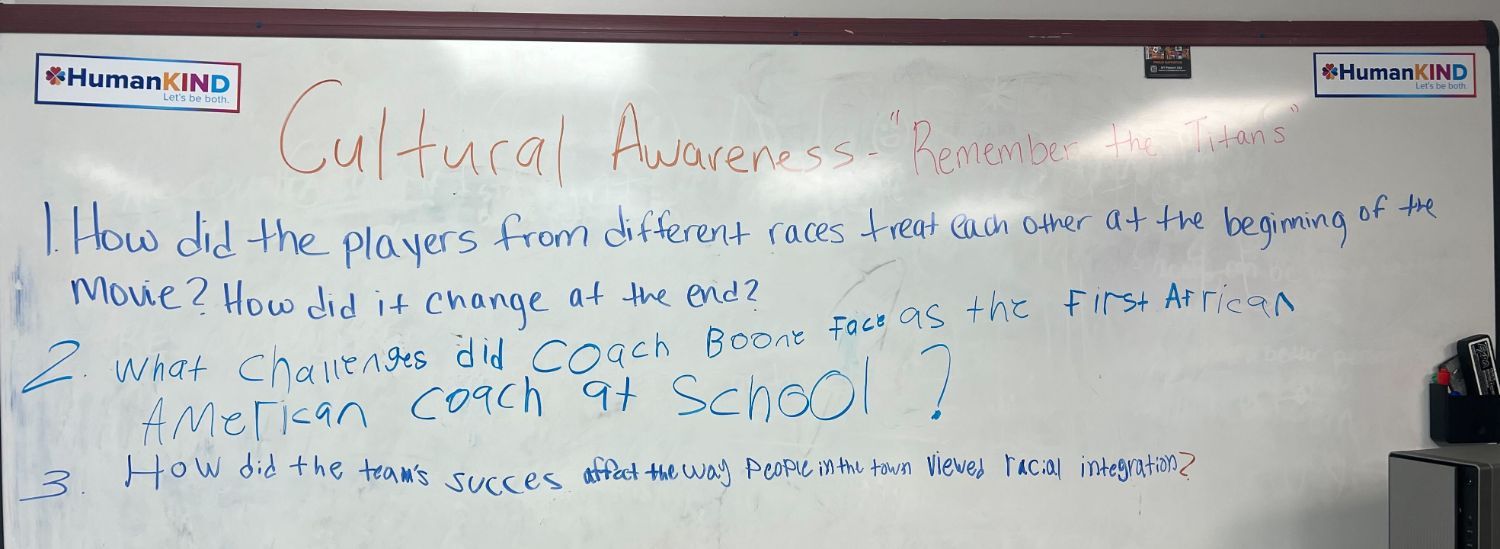 HumanKIND
Let's be both.
HumanKIND
Let's be both.
Cultural Awareness - "Remember the Titans"
1. How did the players from different races treat each other at the beginning of the
Movie? How did it change at the end?
2. What challenges did Coach Boone Face as the First African
American Coach at School?
3. How did the team's succes affect the way People in the town viewed racial integration?